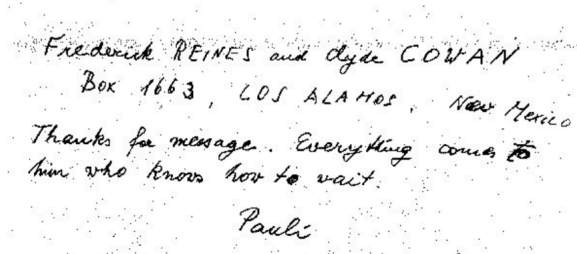 Frederick REINES and Clyde COWAN
Box 1663, LOS ALAMOS, New Mexico
Thanks for message. Everything comes to
him who knows how to wait.
Pauli